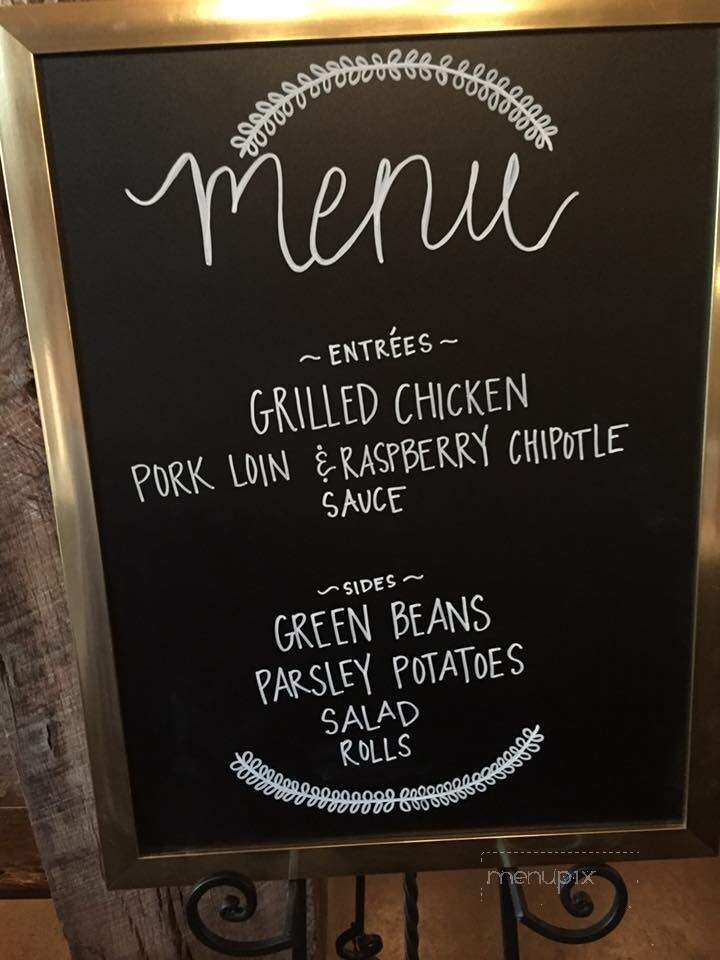 menu
~ ENTRÉES ~
GRILLED CHICKEN
PORK LOIN & RASPBERRY CHIPOTLE
SAUCE
~ SIDES ~
GREEN BEANS
PARSLEY POTATOES
SALAD
ROLLS
menupix